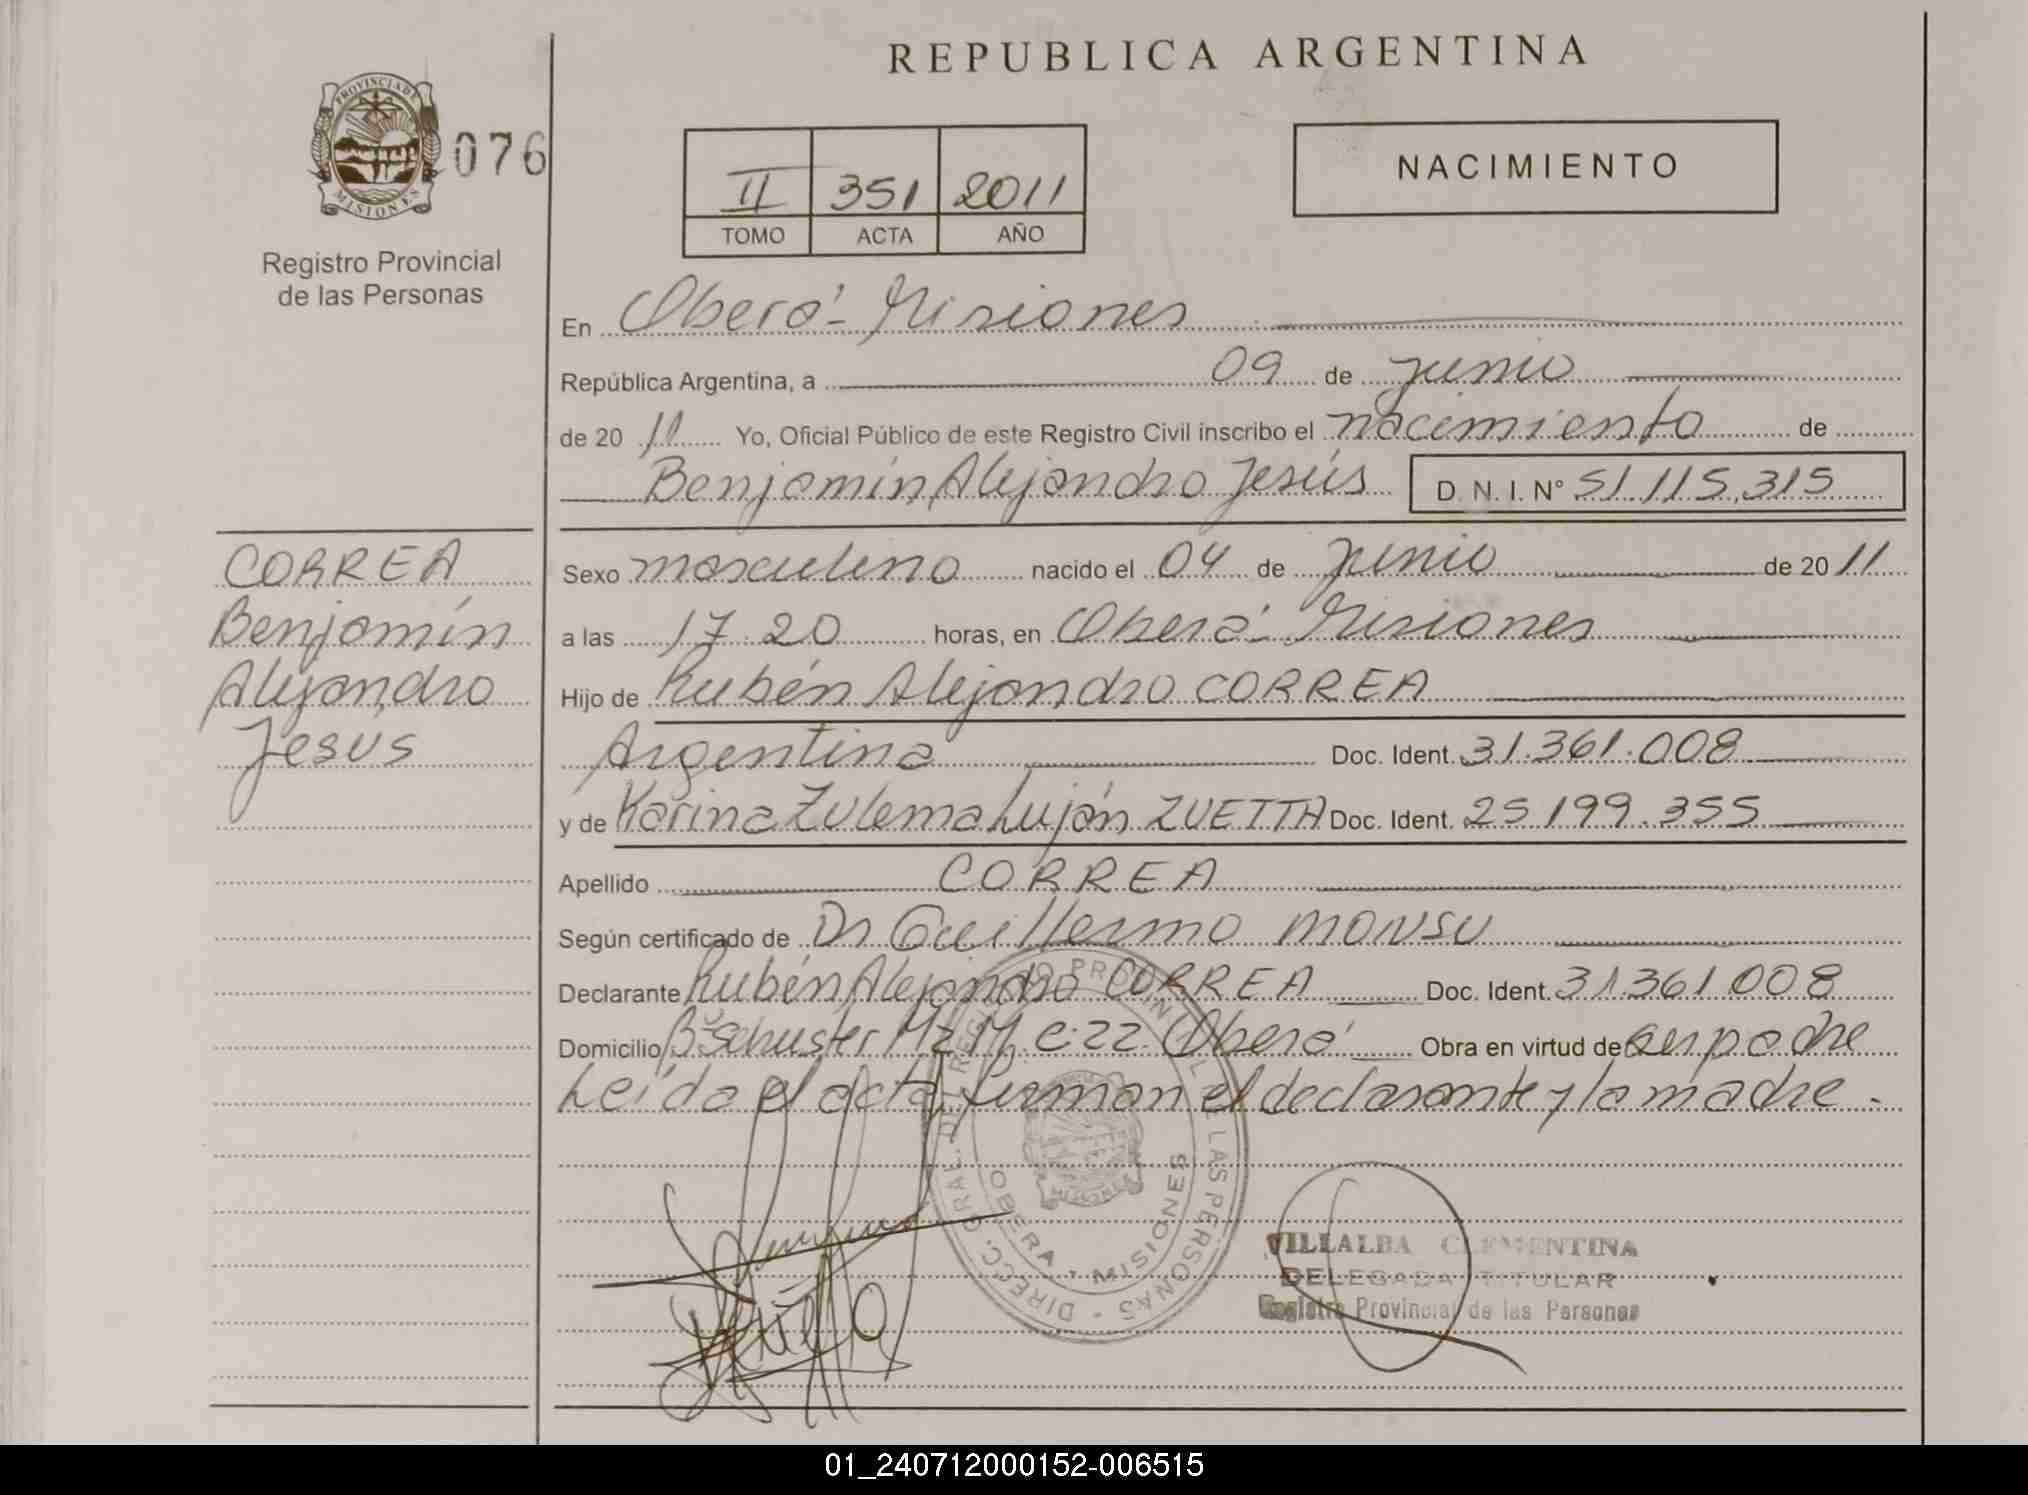 REPUBLICA ARGENTINA
PROVINCIA DE MISIONES
076
Registro Provincial
de las Personas
II 351 2011
TOMO ACTA AÑO
NACIMIENTO
En Oberá - Misiones
República Argentina, a 09 de junio
de 20 11 Yo, Oficial Público de este Registro Civil inscribo el nacimiento de
Benjamín Alejandro Jesús D.N.I. Nº 51.115.315
CORREA
Benjamín
Alejandro
Jesus
Sexo masculino nacido el 04 de junio de 20 11
a las 17.20 horas, en Oberá - Misiones
Hijo de Rubén Alejandro CORREA
Argentina Doc. Ident. 31.361.008
y de Karina Zulema Luján ZUETTA Doc. Ident. 25.199.355
Apellido CORREA
Según certificado de Dr Guillermo MONSU
Declarante Rubén Alejandro CORREA Doc. Ident. 31.361.008
Domicilio Bº Schuster Mz M c.22. Oberá Obra en virtud de ser padre
Leída el acta, firman el declarante y la madre.
DIRECC. GRAL. DEL REGISTRO PROVINCIAL DE LAS PERSONAS
OBERA - MISIONES
VILLALBA CLEMENTINA
DELEGADA TITULAR
Registro Provincial de las Personas
01_240712000152-006515